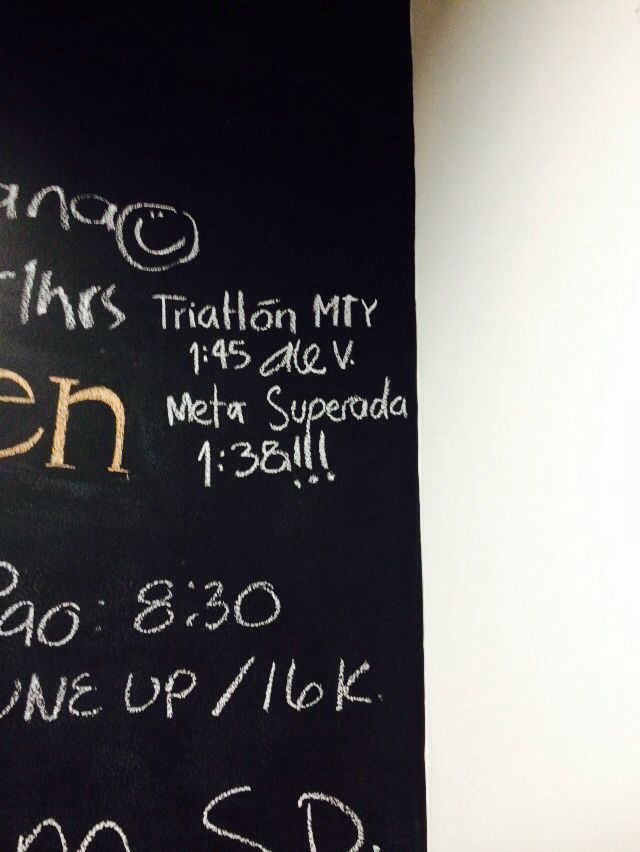 ana
hrs
Triatlón MTY
1:45 Ale V.
Meta Superada
1:38!!!
en
Pao: 8:30
UNE UP / 16K.
S.D.